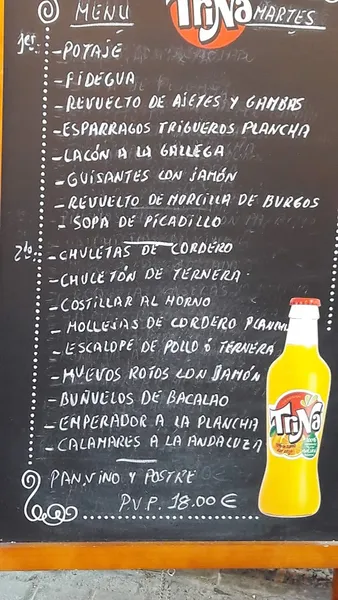 MENU TriNa MARTES
1er: -POTAJE
-FIDEGUA
-REVUELTO DE AJETES Y GAMBAS
-ESPARRAGOS TRIGUEROS PLANCHA
-LACÓN A LA GALLEGA
-GUISANTES CON JAMÓN
-REVUELTO DE MORCILLA DE BURGOS
-SOPA DE PICADILLO
2do: -CHULETAS DE CORDERO
-CHULETÓN DE TERNERA
-COSTILLAR AL HORNO
-MOLLEJAS DE CORDERO PLANCHA
-ESCALOPE DE POLLO Ó TERNERA
-HUEVOS ROTOS CON JAMÓN
-BUÑUELOS DE BACALAO
-EMPERADOR A LA PLANCHA
-CALAMARES A LA ANDALUZA
TriNa
PAN,VINO Y POSTRE
P.V.P. 18.00€